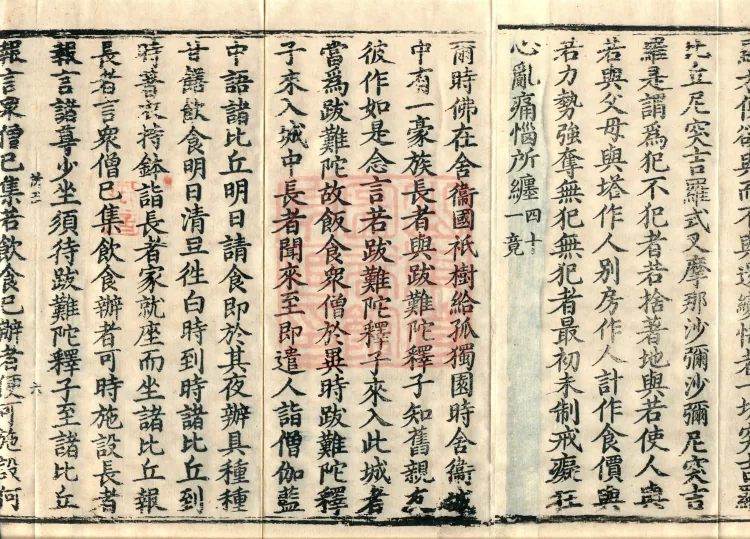 比丘尼突吉羅式叉摩那沙彌沙彌尼突吉
羅是謂為犯不犯者若捨著地與若使人與
若與父母與塔作人別房作人計作食價與
若力勢強奪無犯無犯者最初未制戒癡狂
心亂痛惱所纏四十一竟
爾時佛在舍衛國祇樹給孤獨園時舍衛城
中有一豪族長者與跋難陀釋子知舊親友
彼作如是念言若跋難陀釋子來入此城者
當為跋難陀故飯食眾僧於異時跋難陀釋
子來入城中長者聞來至即遣人詣僧伽藍
中語諸比丘明日請食即於其夜辦具種種
甘饍飲食明日清旦往白時到時諸比丘到
時著衣持鉢詣長者家就座而坐諸比丘報
長者言眾僧已集飲食辦者可時施設長者
報言諸尊少坐須待跋難陀釋子至諸比丘
六
報言眾僧已集若飲食已辦者便可施設何